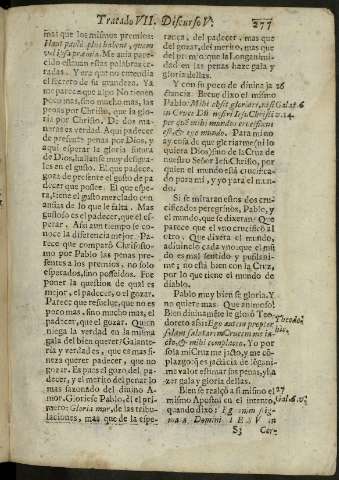 Tratado VII. Discurso V. 277
mas que los mismos premios:
Haut paulò plus habent, quam
vel ipsa præmia. Me avia pare-
cido estavan estas palabras er-
radas. Y era que no entendia
el secreto de su grandeza. Ya
me parece que algo No tienen
poco mas, sino mucho mas, las
penas por Christo, que la glo-
ria por Christo. De dos ma-
neras es verdad. Aqui padecer
de presente penas por Dios, y
aqui esperar la gloria futura
de Dios, hallanse muy desigua-
les en el gusto. El que padece,
goza de presente el gusto de pa-
decer que possee. El que espe-
ra, tiene el gusto mezclado con
ansias de lo que le falta. Mas
gustoso es el padecer, que el es-
perar. Aun aun tiempo se co-
noce la diferencia mejor. Pa-
rece que comparò Chrisosto-
mo por Pablo las penas pre-
sentes a los premios, no solo
esperados, sino posseidos. Fue
poner la question de qual es
mejor, el padecer, o el gozar.
Parece que resuelve, que no es
poco mas, sino mucho mas, el
padecer, que el gozar. Quien
niega la verdad en la misma
gala del bien querer? Galante-
ria y verdades, que es mas fi-
neza querer padecer, que no
gozar. Es pues el gozo del pa-
decer, y el merito del penar lo
mas sazonado del divino A-
mor. Gloriese Pablo, èl el pri-
mero: Gloriamur, de las tribu-
laciones, mas que de la espe-
rança, del padecer, mas que
del gozar, del merito, mas que
del premio: que la Longanimi-
dad en las penas haze gala y
gloria dellas.
Y con su poco de divina ja 26
ctancia. Breve dixo el mismo
Pablo: Mihi absit gloriari, nisi Galat. 6
in Cruce Dñi nostri Iesu Christi v. 14.
per quẽ mihi mundus crucifixus
est, & ego mundo. Para mi no
ay cosa de que gloriarme (ni lo
quiera Dios) sino de la Cruz de
nuestro Señor Iesu Christo, por
quien el mundo està crucifica-
do para mi, y yo para el mun-
do.
Si se miraran estos dos cru-
cificados peregrinos, Pablo, y
el mundo, que se dixeran? Que
parece que el vno crucificò al
otro. Que dixera el mundo,
adiuinelo cada vno: que el mũ
do es mal sentido y pusilani-
me; no està bien con la Cruz,
por lo que tiene del mundo de
diablo.
Pablo muy bien se gloria. Y
no quiere mas. Que animoso!
Bien divinamẽte le glosò Teo-
doreto assi: Ego autem propter Theodo-
solam salutarem Crucem me ia-
cto, & mihi complaceo. Yo por
sola mi Cruz me jacto, y me cõ-
plazgo: q̃ es jactacia de lõgani-
me valor estimar sus penas, y ha-
zer gala y gloria dellas.
Bien se realça a si mismo el 27
mismo Apostol en el intento, Gal. 6. v.
quando dixo: Ego enim stig-
mata Domini IESV in
S3 Cor-